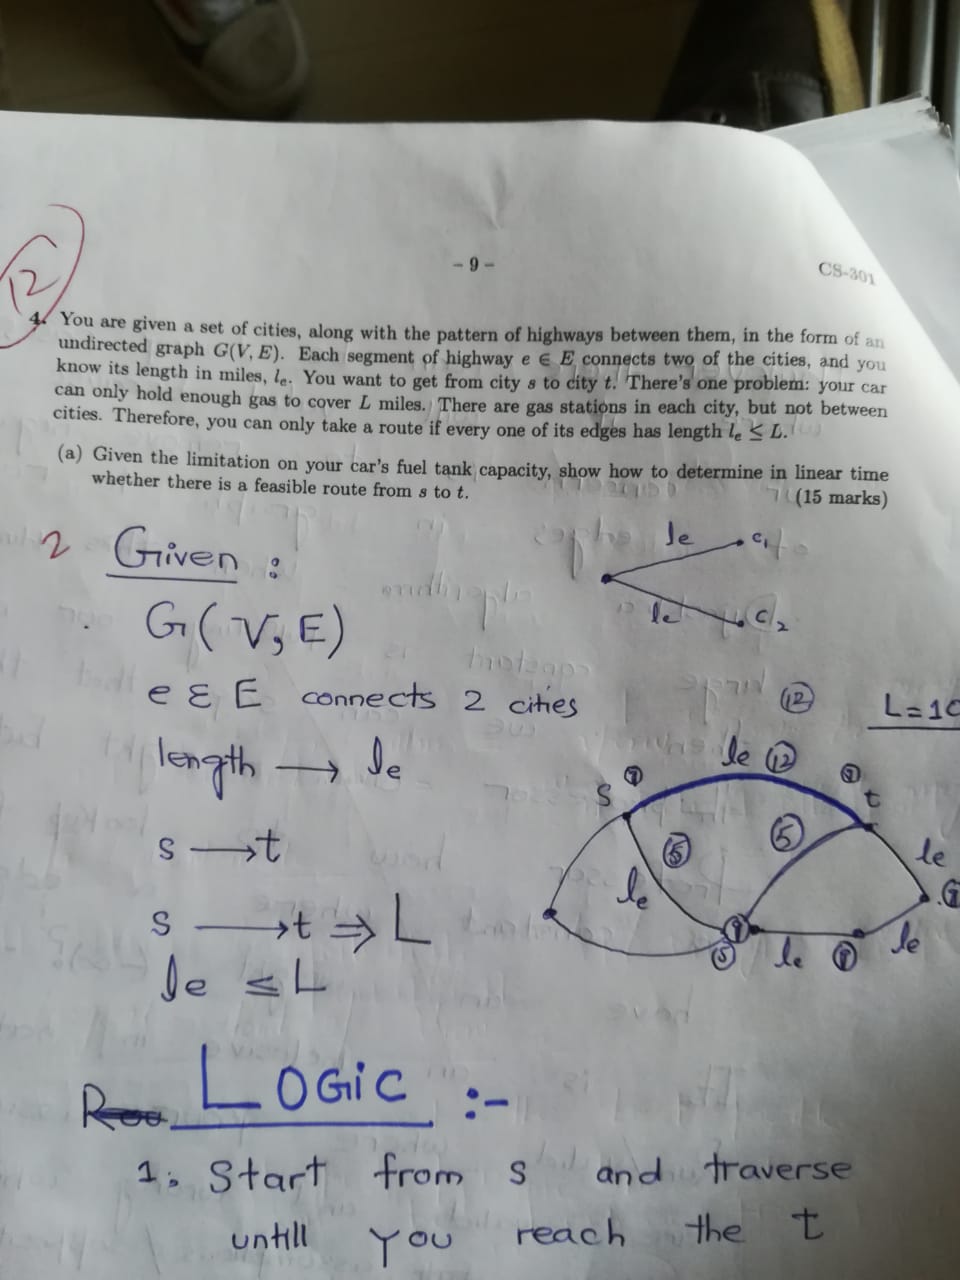 - 9 -
CS-301
12
4. You are given a set of cities, along with the pattern of highways between them, in the form of an
undirected graph G(V, E). Each segment of highway e ∈ E connects two of the cities, and you
know its length in miles, lₑ. You want to get from city s to city t. There's one problem: your car
can only hold enough gas to cover L miles. There are gas stations in each city, but not between
cities. Therefore, you can only take a route if every one of its edges has length lₑ ≤ L.
(a) Given the limitation on your car's fuel tank capacity, show how to determine in linear time
whether there is a feasible route from s to t. (15 marks)
2 Given :
le c₁
le c₂
G(V, E)
e Ɛ E connects 2 cities
12 L=10
length → le
le 12
s t
5 5
le le
s → t
s → t ⇒ L
le le
le ≤ L
LOGiC :-
1. Start from s and traverse
untill you reach the t